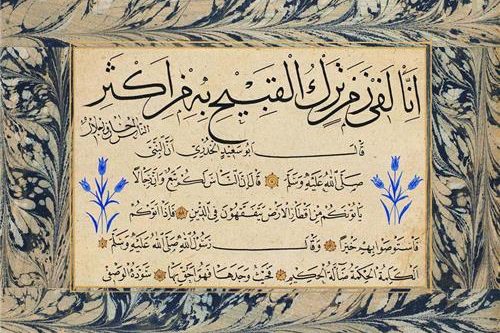 انا لفى زمن ترك القبيح به من اكثر
الناس احسان واجمال
قال ابو سعيد الخدرى ان النبى
صلى الله عليه وسلم قال ان الناس لكم تبع وان رجالا
يأتونكم من اقطار الارض يتفقهون فى الدين فاذا اتوكم
فاستوصوا بهم خيرا وقال رسول الله صلى الله عليه وسلم
الكلمة الحكمة ضالة الحكيم فحيث وجدها فهو احق بها سوده الوصفى